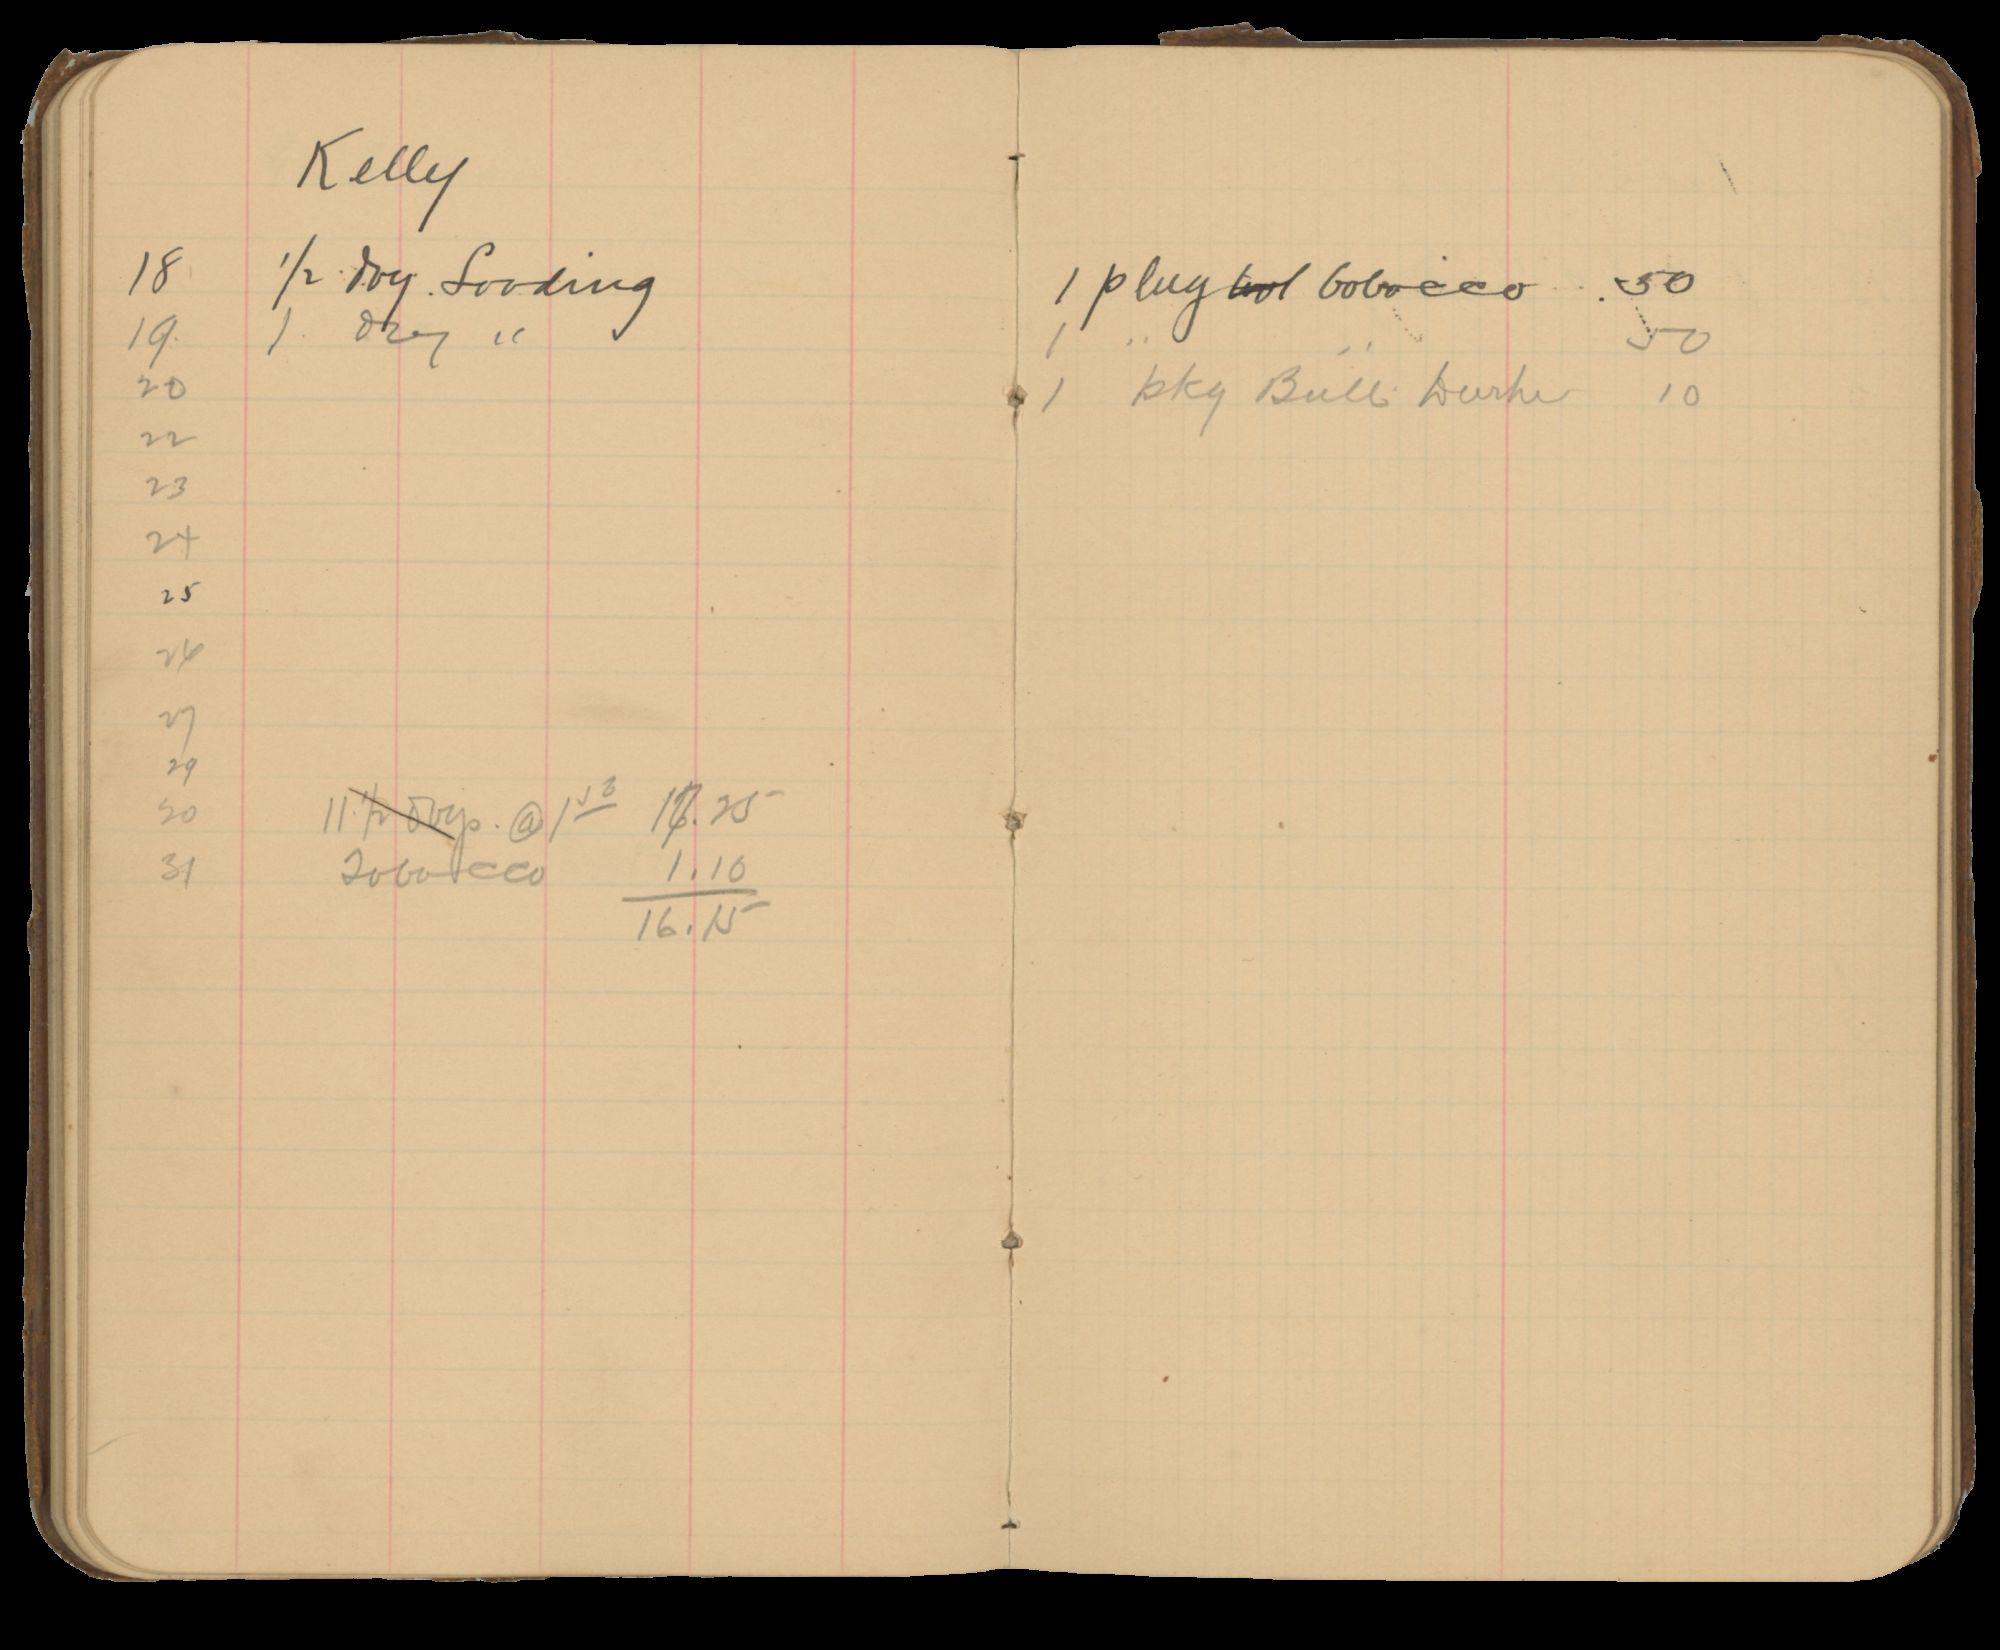 Kelly
18 1/2 Day. Loading
19. 1. Day "
20
22
23
24
25
26
27
29
30 11 1/2 Days. @ 1 50 17.25
31 Tobacco 1.10
16.15
1 plug tobacco .50
1 " " 50
1 pkg Bull Durham 10